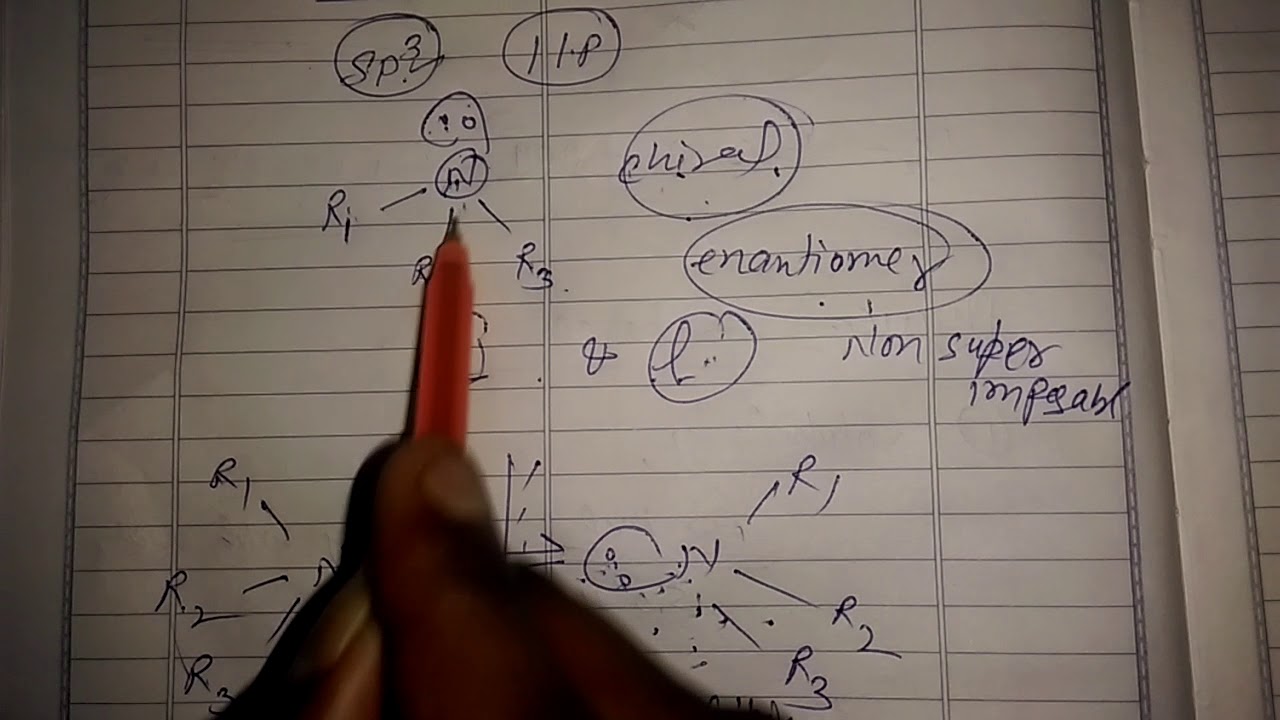 sp3 1 l.p
N
R1 R3
chiral
enantiomer
& l
Non super
impasabl
R1 R1
R2 N R2
R3 R3